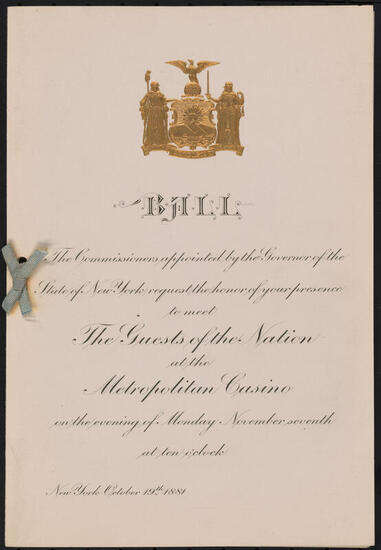 BALL
The Commissioners appointed by the Governor of the
State of New York request the honor of your presence
to meet
The Guests of the Nation
at the
Metropolitan Casino
on the evening of Monday November seventh
at ten o'clock
New York October 19th 1881